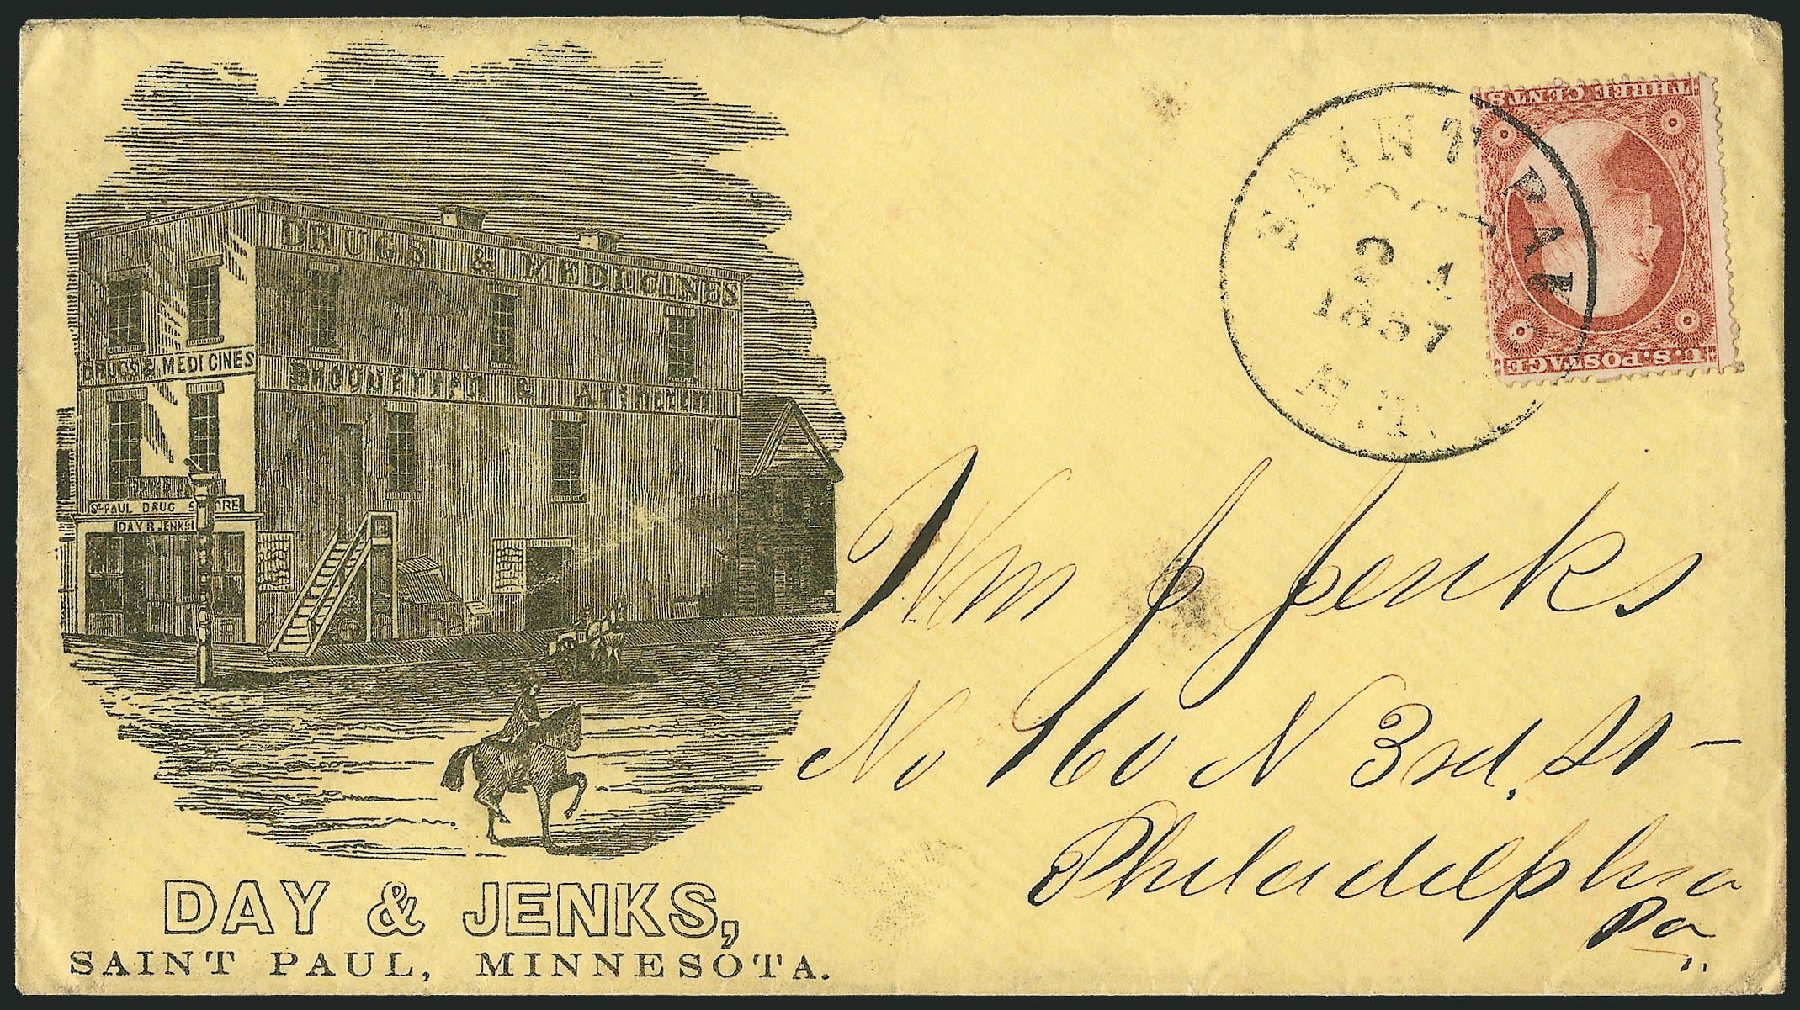 DRUGS & MEDICINES
DRUGS & MEDICINES
ST PAUL DRUG STORE
DAY & JENKS
DAY & JENKS,
SAINT PAUL, MINNESOTA.
SAINT PAUL
OCT
24
1857
M.T.
THREE CENTS
U.S. POSTAGE
Wm J Jenks
No 160 N 3rd. St -
Philadelphia
Pa